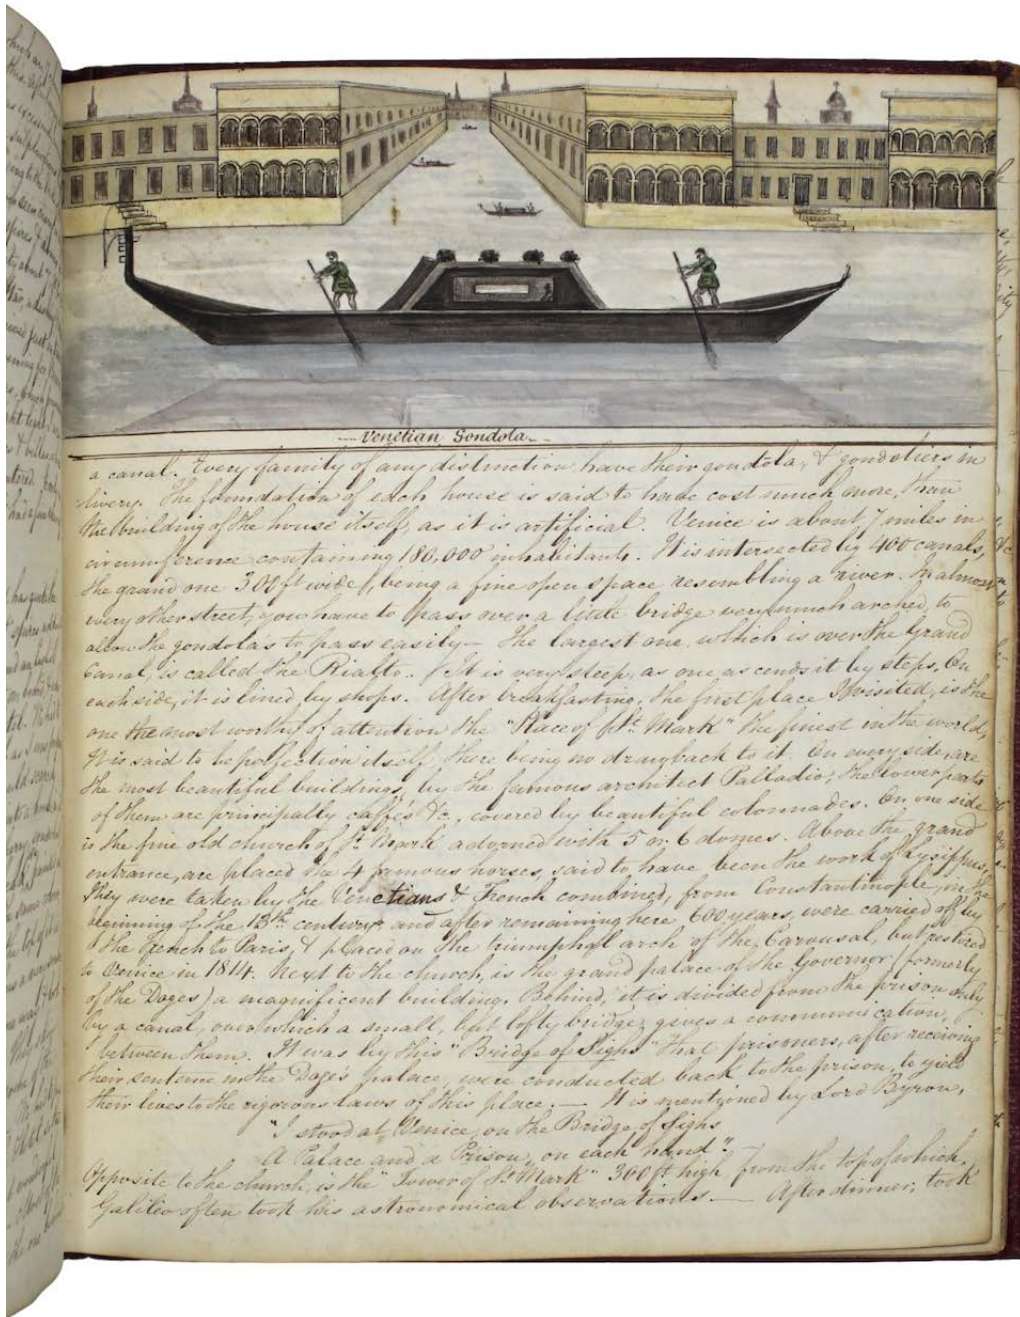 Venetian Gondola.
a canal. Every family of any distinction, have their gondola, & gondoliers in
livery. The foundation of each house is said to have cost much more, than
the building of the house itself, as it is artificial. Venice is about 7 miles in
circumference containing 180,000 inhabitants. It is intersected by 400 canals,
the grand one 300 ft wide, being a fine open space resembling a river. In almost
every other street, you have to pass over a little bridge very much arched, to
allow the gondola's to pass easily — The largest one, which is over the Grand
Canal, is called the Rialto. It is very steep, as one ascends it by steps. On
each side, it is lined by shops. After breakfasting, the first place I visited, is the
one the most worthy of attention the "Place of St. Mark" the finest in the world,
It is said to be perfection itself, there being no drawback to it. On every side, are
the most beautiful buildings, by the famous architect Palladio; the lower parts
of them are principally caffés &c., covered by beautiful colonnades. On one side
is the fine old church of St. Mark adorned with 5 or 6 domes. Above the grand
entrance, are placed the 4 famous horses, said to have been the work of Lysippus,
They were taken by the Venetians & French combined, from Constantinople, in the
beginning of the 13th century, and after remaining here 600 years, were carried off by
the French to Paris, & placed on the triumphal arch of the Carousal, but restored
to Venice in 1814. Next to the church, is the grand palace of the Governor (formerly
of the Doges) a magnificent building. Behind, it is divided from the prison only
by a canal, over which a small, but lofty bridge, gives a communication,
between them. It was by this "Bridge of Sighs" that prisoners, after receiving
their sentence in the Doge's palace, were conducted back to the prison, to yield
their lives to the rigorous laws of this place. — It is mentioned by Lord Byron,
"I stood at Venice, on the Bridge of Sighs
A Palace and a Prison, on each hand".
Opposite to the church, is the "Tower of St. Mark" 300 ft high, from the top of which,
Galileo often took his astronomical observations. — After dinner, took